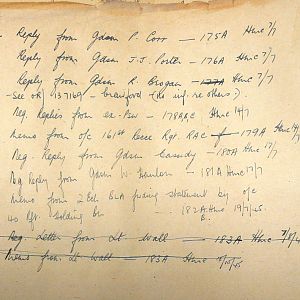 - Reply from Gdsm P. Corr — 175A Hmc 7/7
Reply from Gdsm J.J. Porter — 176A Hmc 7/7
Reply from Gdsm R. Brogan — 177A Hmc 7/7
- See OR 137169 - Crawford (No inf. re others).
Neg. Replies from ex-Psw — 178A&C Hmc 14/7
Memo from O/C 161st Recce Regt. RAC — 179A Hmc 14/7
Neg. Reply from Gdsm Cassidy — 180A Hmc 17/7
Neg Reply from Gdsm W. — 181A Hmc 17/7
Memo from 2 Ech. BLA fwding statement by O/C
40 Rft. Holding Bn — 182A Hmc 19/7/45
B.
Neg. Letter from Lt Wall — 183A Hmc
Memo from Lt Wall — 183A Hmc